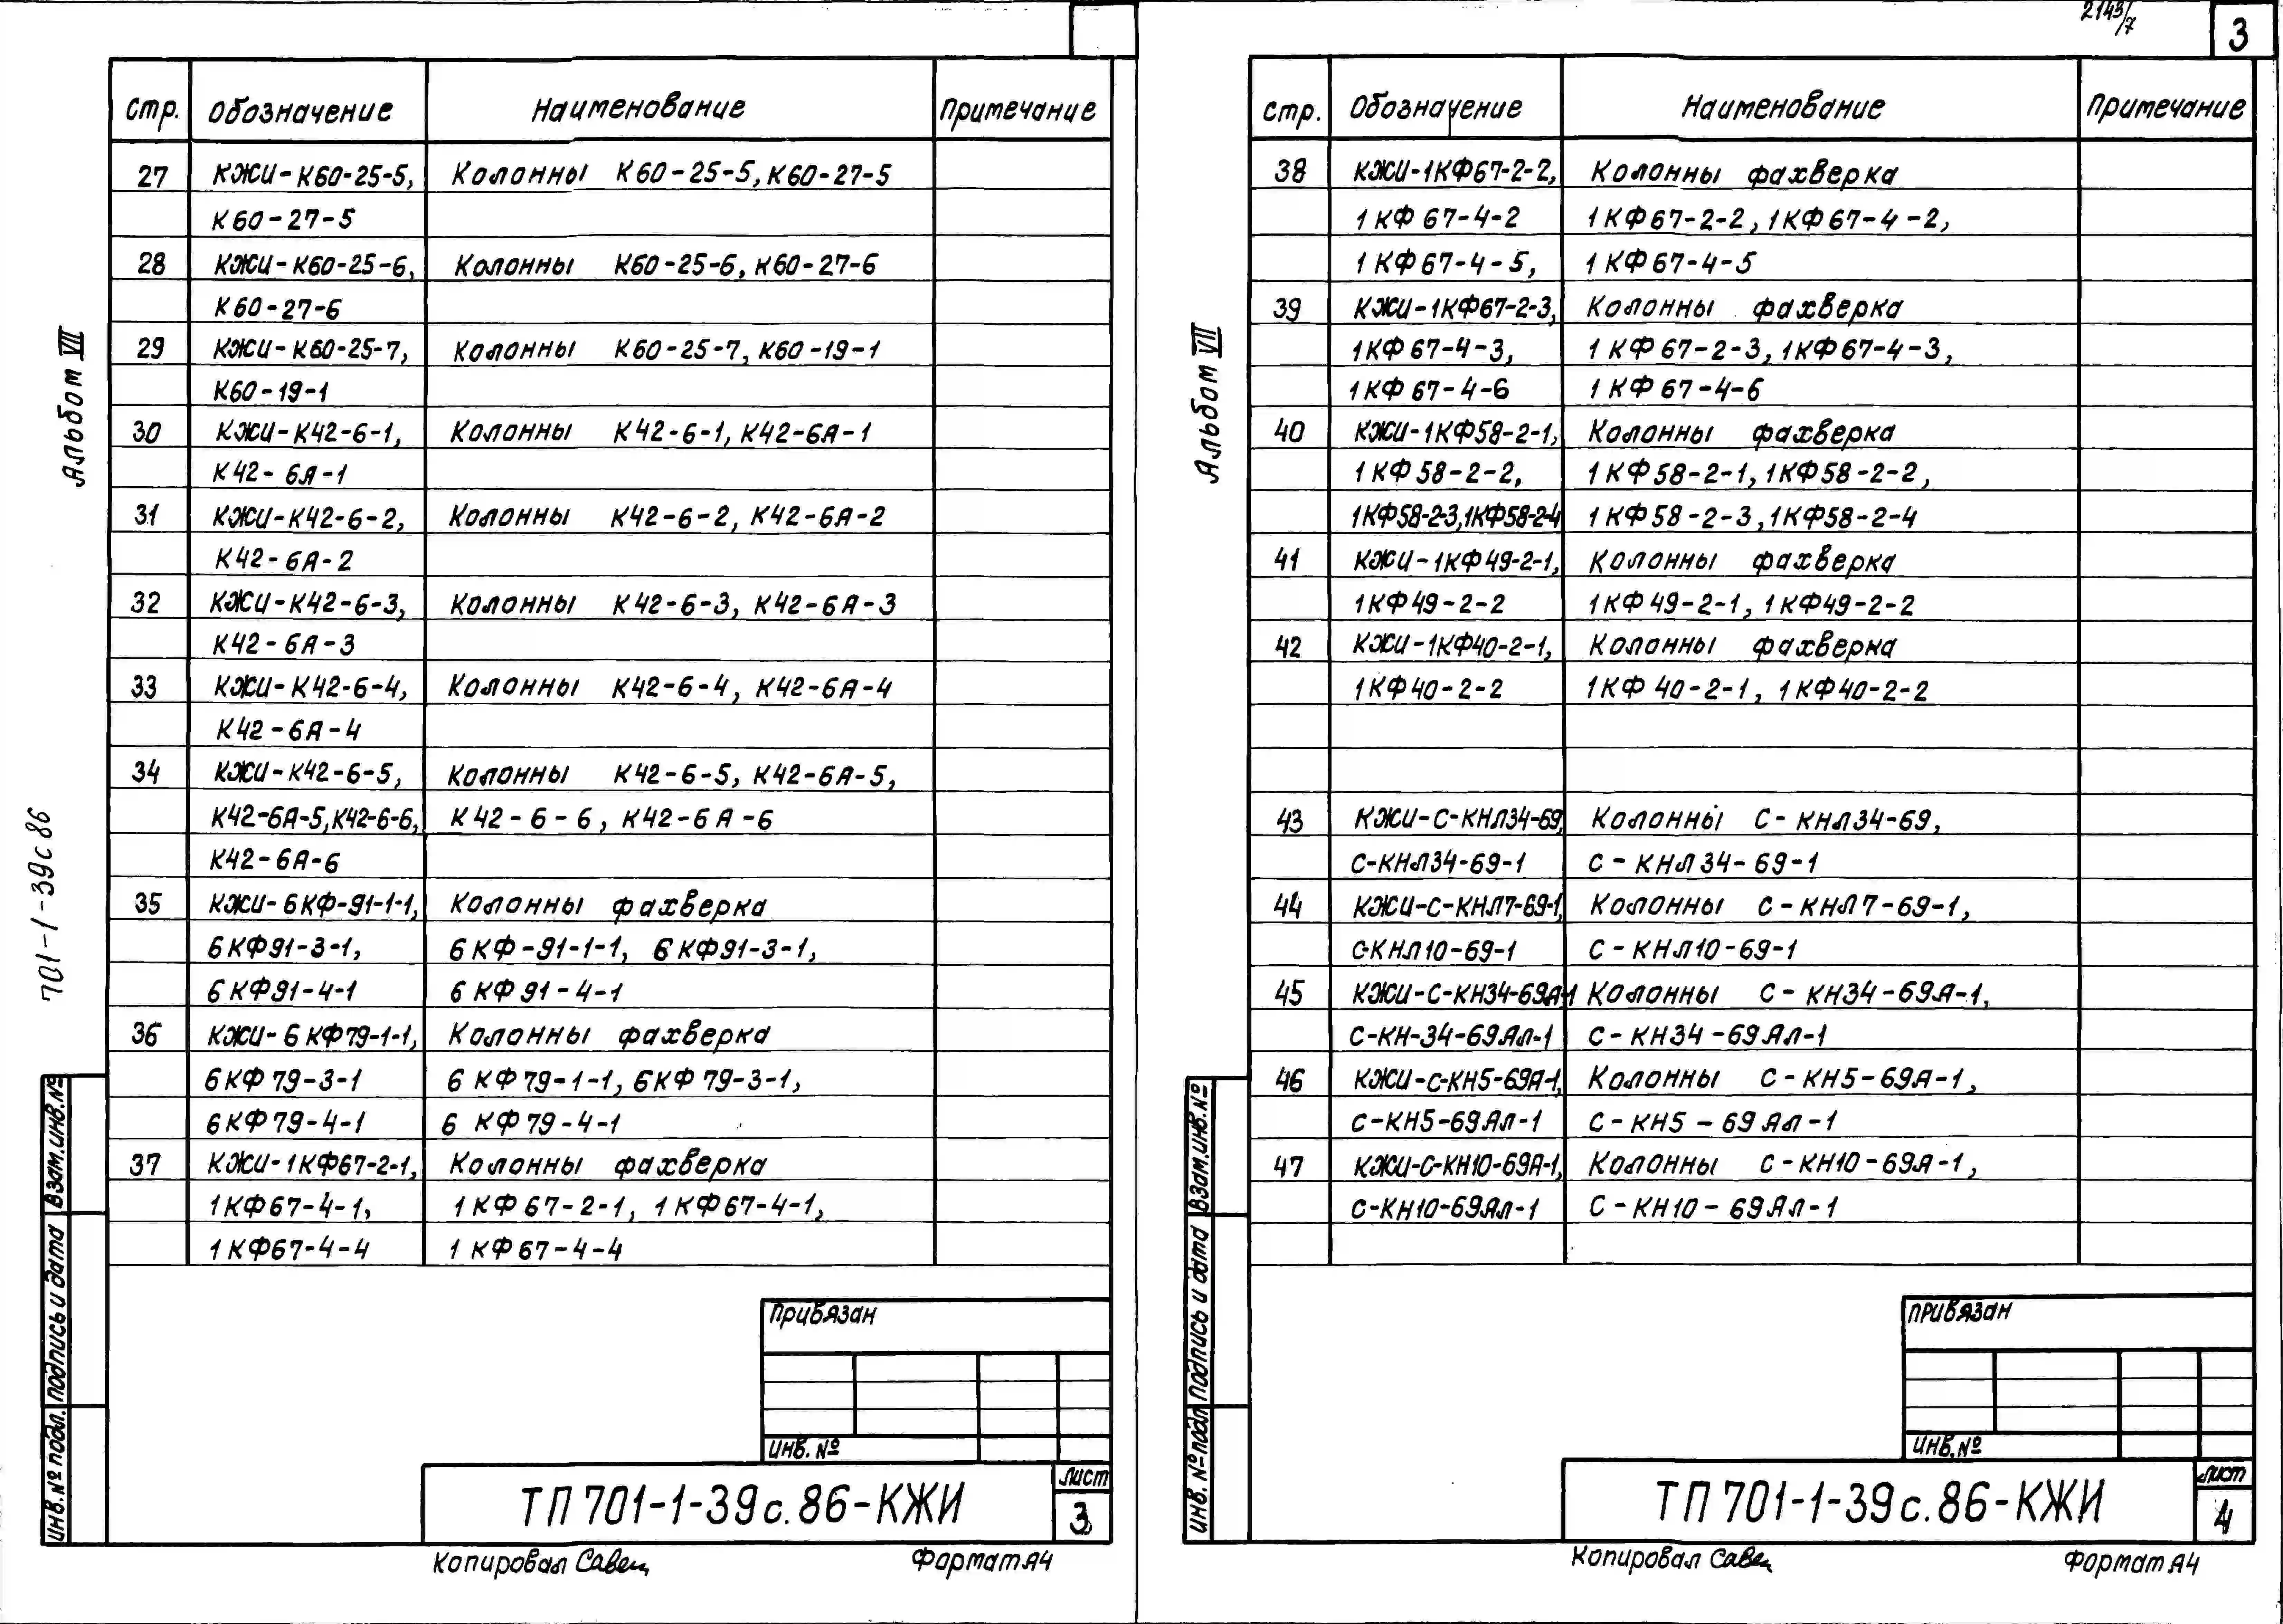 2143/7
3
Альбом VII
701-1-39с86
стр. Обозначение Наименование Примечание
27 КЖИ-К60-25-5, Колонны К60-25-5, К60-27-5
К60-27-5
28 КЖИ-К60-25-6, Колонны К60-25-6, К60-27-6
К60-27-6
29 КЖИ-К60-25-7, Колонны К60-25-7, К60-19-1
К60-19-1
30 КЖИ-К42-6-1, Колонны К42-6-1, К42-6Я-1
К42-6Я-1
31 КЖИ-К42-6-2, Колонны К42-6-2, К42-6Я-2
К42-6Я-2
32 КЖИ-К42-6-3, Колонны К42-6-3, К42-6Я-3
К42-6Я-3
33 КЖИ-К42-6-4, Колонны К42-6-4, К42-6Я-4
К42-6Я-4
34 КЖИ-К42-6-5, Колонны К42-6-5, К42-6Я-5,
К42-6Я-5, К42-6-6, К42-6-6, К42-6Я-6
К42-6Я-6
35 КЖИ-6КФ-91-1-1, Колонны фахверка
6КФ91-3-1, 6КФ-91-1-1, 6КФ91-3-1,
6КФ91-4-1 6КФ91-4-1
36 КЖИ-6КФ79-1-1, Колонны фахверка
6КФ79-3-1 6КФ79-1-1, 6КФ79-3-1,
6КФ79-4-1 6КФ79-4-1
37 КЖИ-1КФ67-2-1, Колонны фахверка
1КФ67-4-1, 1КФ67-2-1, 1КФ67-4-1,
1КФ67-4-4 1КФ67-4-4
Взам.инв.№
Подпись и дата
Инв.№ подл.
Привязан
Инв.№
ТП 701-1-39с.86-КЖИ
Лист
3
Копировал Савец
Формат А4
Альбом VII
стр. Обозначение Наименование Примечание
38 КЖИ-1КФ67-2-2, Колонны фахверка
1КФ67-4-2 1КФ67-2-2, 1КФ67-4-2,
1КФ67-4-5, 1КФ67-4-5
39 КЖИ-1КФ67-2-3, Колонны фахверка
1КФ67-4-3, 1КФ67-2-3, 1КФ67-4-3,
1КФ67-4-6 1КФ67-4-6
40 КЖИ-1КФ58-2-1, Колонны фахверка
1КФ58-2-2, 1КФ58-2-1, 1КФ58-2-2,
1КФ58-2-3, 1КФ58-2-4 1КФ58-2-3, 1КФ58-2-4
41 КЖИ-1КФ49-2-1, Колонны фахверка
1КФ49-2-2 1КФ49-2-1, 1КФ49-2-2
42 КЖИ-1КФ40-2-1, Колонны фахверка
1КФ40-2-2 1КФ40-2-1, 1КФ40-2-2
43 КЖИ-С-КНЛ34-69, Колонны С-КНЛ34-69,
С-КНЛ34-69-1 С-КНЛ34-69-1
44 КЖИ-С-КНЛ7-69-1, Колонны С-КНЛ7-69-1,
С-КНЛ10-69-1 С-КНЛ10-69-1
45 КЖИ-С-КН34-69Я-1 Колонны С-КН34-69Я-1,
С-КН-34-69Ял-1 С-КН34-69Ял-1
46 КЖИ-С-КН5-69Я-1, Колонны С-КН5-69Я-1,
С-КН5-69Ял-1 С-КН5-69Ял-1
47 КЖИ-С-КН10-69Я-1, Колонны С-КН10-69Я-1,
С-КН10-69Ял-1 С-КН10-69Ял-1
Взам.инв.№
Подпись и дата
Инв.№ подл
Привязан
Инв.№
ТП 701-1-39с.86-КЖИ
Лист
4
Копировал Савец
Формат А4